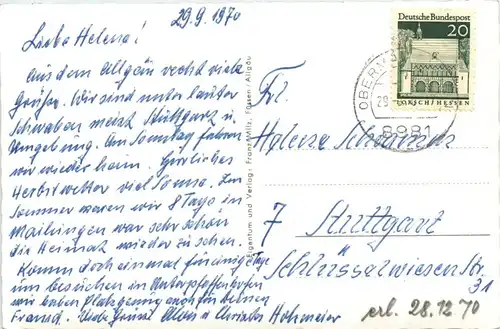 29.9.1970
Liebe Helena!
Aus dem Allgäu recht viele
Grüße. Wir sind unter lauter
Schwaben meist Stuttgart u.
Umgebung. Am Sonntag fahren
wir wieder heim. Herrliches
Herbstwetter viel Sonne. Im
Sommer waren wir 8 Tage in
Mailingen war sehr schön
die Heimat wieder zu sehen.
Komm doch einmal für einige Tage
uns besuchen in Unterpfaffenhofen
wir haben Platz genug auch für deinen
Freund. Viele Grüße Alois u. Hohmeier
Eigentum und Verlag: Franz Milz, Füssen/Allgäu
Deutsche Bundespost
20
LORSCH/HESSEN
8981
Frl.
Helene
7 Stuttgart
Schlüsselwiesen Str.
31
erh. 28.12.70